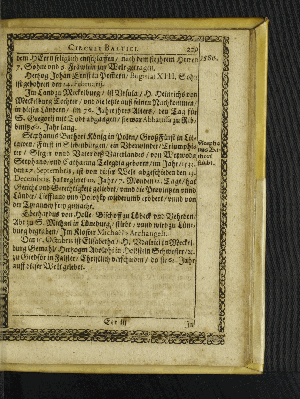 CIRCULI BALTICI. 229
dem HErrn seliglich entschlaffen / nach dem sie ihrem Herren
7. Söhne und 2. Fräwlein zur Welt getragen.
Hertzog Johan Ernst in Preussen / XIII. Sohn
ist gebohren den
Im Land zu Meckelburg / ist Ursula / H. Heinrichs von
Meckelburg Tochter / und die letzte auff seinen Nachkommen /
in diesen Ländern / im 75. Jahr ihres Alters / den Tag für
S. Georgii mit Todt abgangen / sie war Abbatissa zu
Jahr lang.
Stephanus Bathori König in Polen / Groß Fürst in
tawen / Fürst in Siebenbürgen / ein Uberwinder / Triumphi-
rer / Sieger und Vater des Vaterlandes / von
Stephano und Catharina Telegdia gebohren / im Jahr
27. Septembris, ist von dieser Welt abgeschieden den 13.
Decembris, hat regieret 10. Jahr / 7. Monden / Tage / hat
Gericht und Gerechtigkeit geliebet / und die Provintzen und
Länder / Lieffland und wiederumb erobert / und von
der Tyranney frey gemacht.
Eberhardus von Holle / Bischoff zu Lübeck und Vehrden /
Abt zu S. Michael in Lüneburg / stirbt / und wird zu Lüne-
burg begraben / Im Kloster Michaelis Archangeli.
Den 15. Octobris ist Elisabetha / H. Ulrichs in Meckel-
burg Gemahl / Hertzogen Adolphs in Holstein Schwester /
zu Giedsör in Falster / Christlich verschieden / da sie 62. Jahr
auff dieser Welt gelebet.
1586.
Stepha-
nus Ba-
thori
stirbt.
Eee iij In